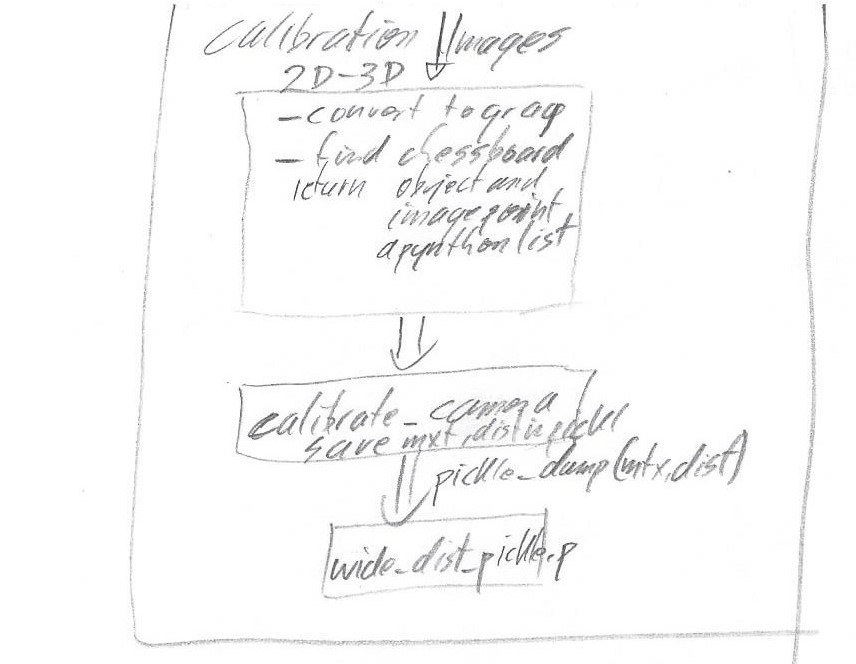 calibration Images
2D-3D
- convert to gray
- find chessboard
return object and
image point
a pynthon list
calibrate_camera
save mxt, dist in pickl
pickle_dump(mtx,dist)
wide_dist_pickle.p